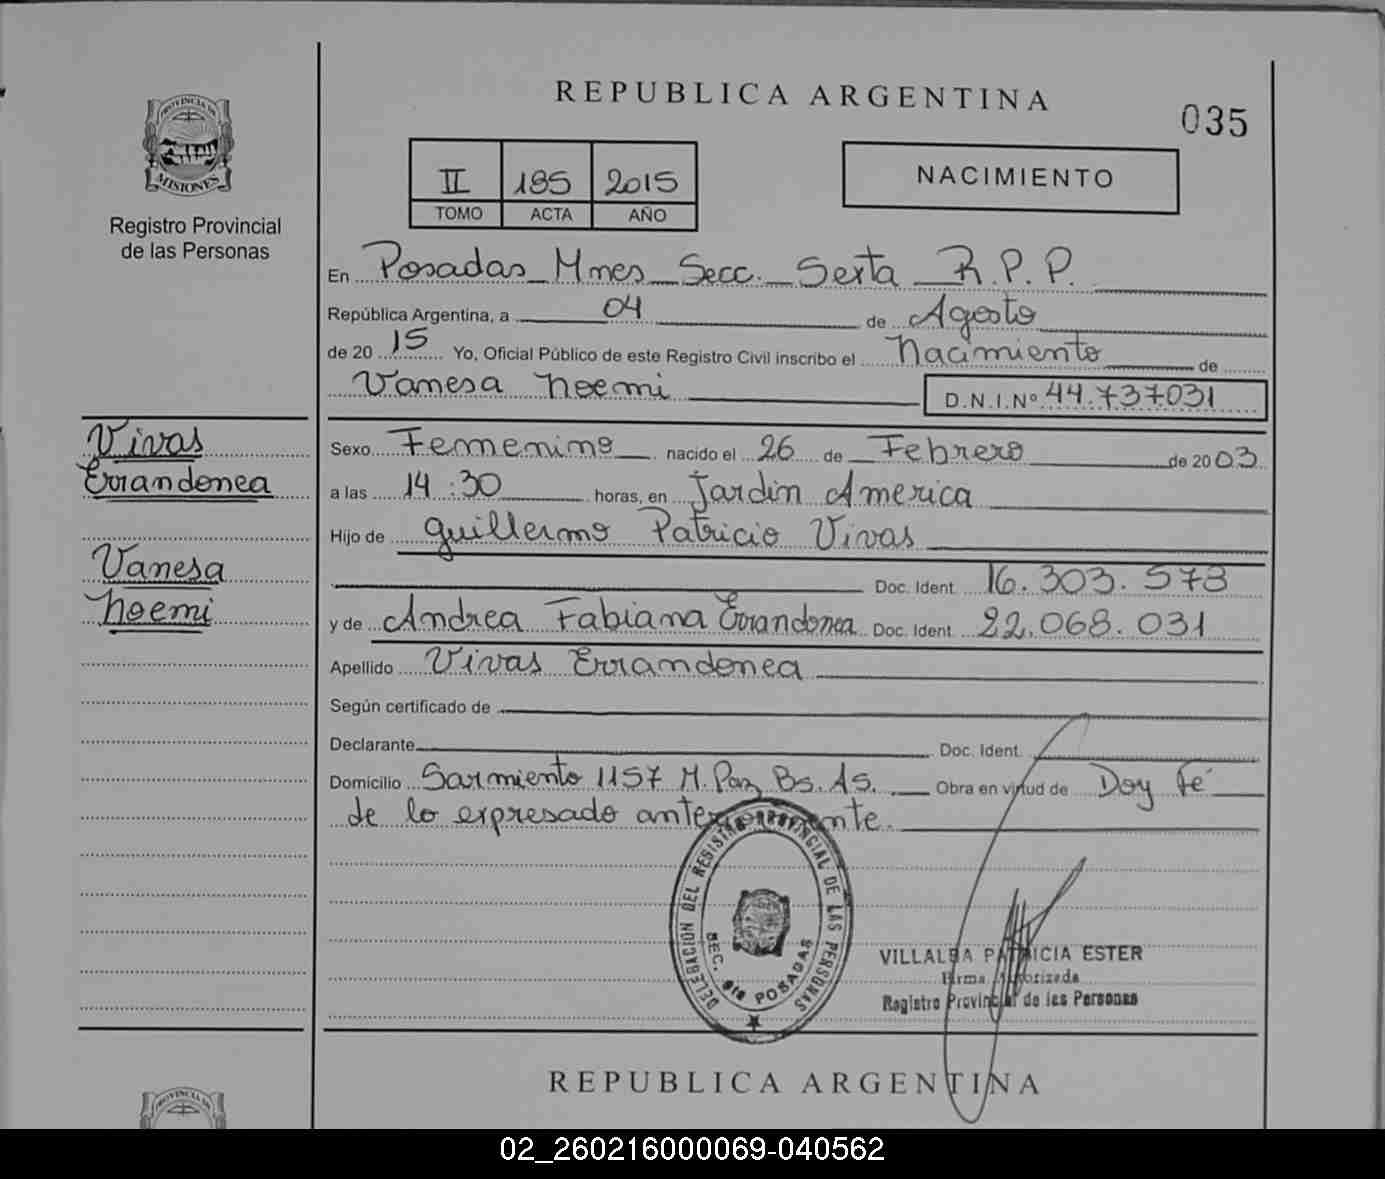 REPUBLICA ARGENTINA
035
PROVINCIA DE
MISIONES
Registro Provincial
de las Personas
II 185 2015
TOMO ACTA AÑO
NACIMIENTO
En Posadas Mnes Secc. Sexta R.P.P.
República Argentina, a 04 de Agosto
de 20 15 Yo, Oficial Público de este Registro Civil inscribo el Nacimiento de
Vanesa Noemi D.N.I.Nº 44.737031
Vivas
Errandonea
Vanesa
Noemi
Sexo Femenino nacido el 26 de Febrero de 2003
a las 14:30 horas, en Jardin America
Hijo de Guillermo Patricio Vivas
Doc. Ident. 16.303.573
y de Andrea Fabiana Errandonea Doc. Ident. 22.068.031
Apellido Vivas Errandonea
Según certificado de
Declarante Doc. Ident.
Domicilio Sarmiento 1157 M. Paz Bs. As. Obra en virtud de Doy Fé
de lo expresado anteriormente.
DELEGACION DEL REGISTRO PROVINCIAL DE LAS PERSONAS
SEC. 6ta POSADAS
VILLALBA PATRICIA ESTER
Firma Autorizada
Registro Provincial de las Personas
REPUBLICA ARGENTINA
PROVINCIA DE
02_260216000069-040562